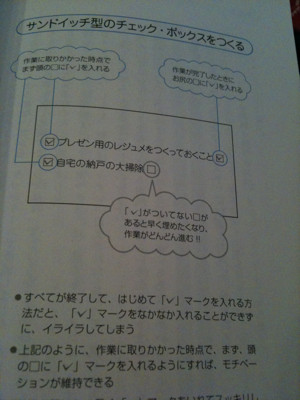 サンドイッチ型のチェック・ボックスをつくる
作業に取りかかった時点で
まず頭の□に「✓」を入れる
作業が完了したときに
お尻の□に「✓」を入れる
☑プレゼン用のレジュメをつくっておくこと☑
☑自宅の納戸の大掃除□
「✓」がついてない□が
あると早く埋めたくなり、
作業がどんどん進む!!
●すべてが終了して、はじめて「✓」マークを入れる方
法だと、「✓」マークをなかなか入れることができず
に、イライラしてしまう
●上記のように、作業に取りかかった時点で、まず、頭
の□に「✓」マークを入れるようにすれば、モチベ
ーションが維持できる